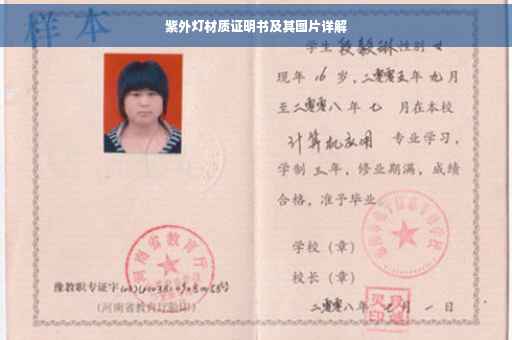 紫外灯材质证明书及其图片详解
样本
学生 段毅琳 性别 女
现年 16 岁，二零零五年 九 月
至二零零八年 七 月在本校
计算机应用 专业学习，
学制 三 年，修业期满，成绩
合格，准予毕业。
学校（章）
校长（章）
二零零八年 七 月 一 日
河南省教育厅
豫教职专证字
（河南省教育厅验印）